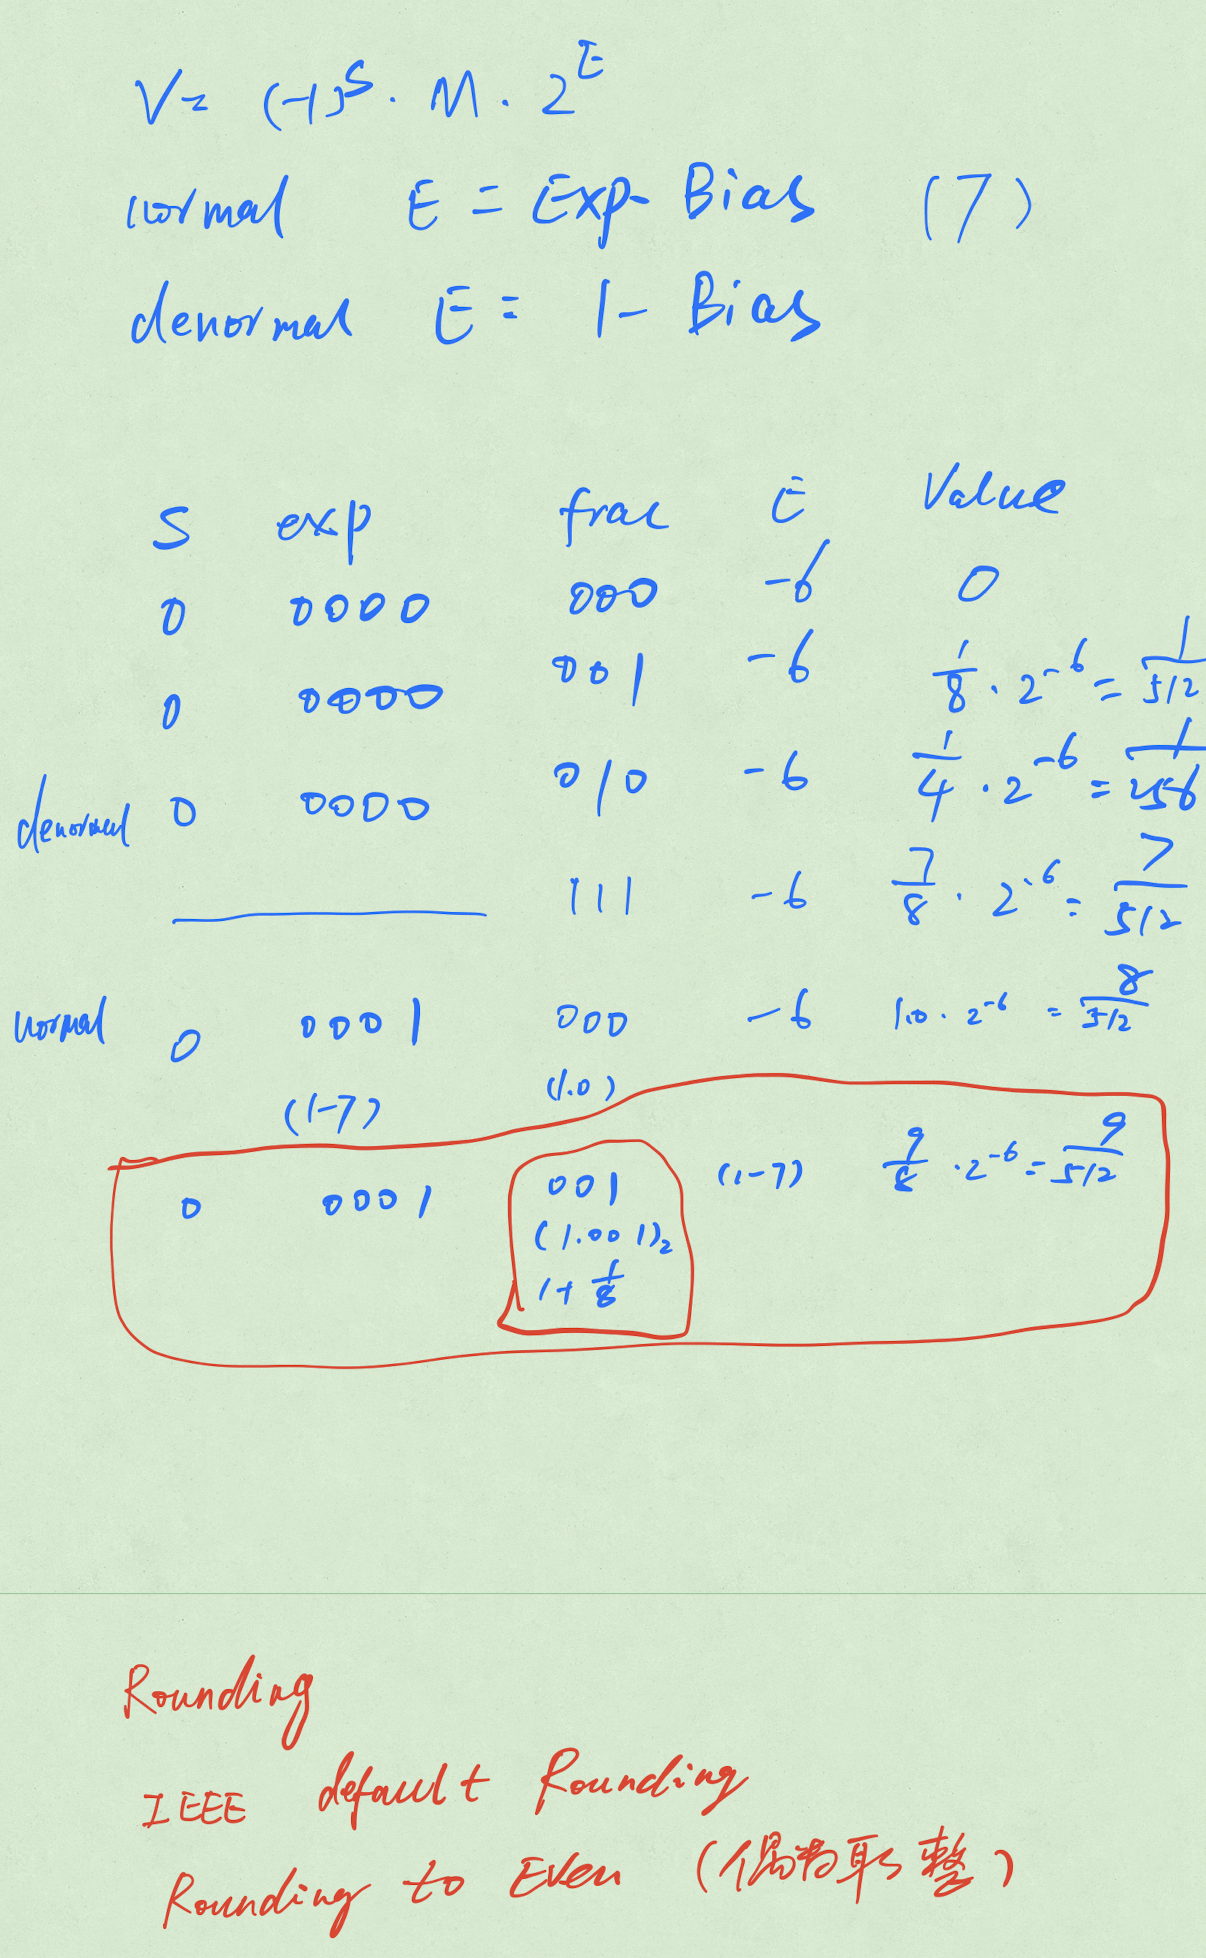 V = (-1)^S · M · 2^E
normal E = Exp - Bias (7)
denormal E = 1 - Bias
S exp frac E Value
0 0000 000 -6 0
0 0000 001 -6 1/8 · 2^-6 = 1/512
denormal 0 0000 010 -6 1/4 · 2^-6 = 1/256
111 -6 7/8 · 2^-6 = 7/512
normal 0 0001 000 -6 1.0 · 2^-6 = 8/512
(1-7) (1.0)
0 0001 001 (1-7) 9/8 · 2^-6 = 9/512
(1.001)₂
1+1/8
Rounding
IEEE default Rounding
Rounding to Even (偶向取整)